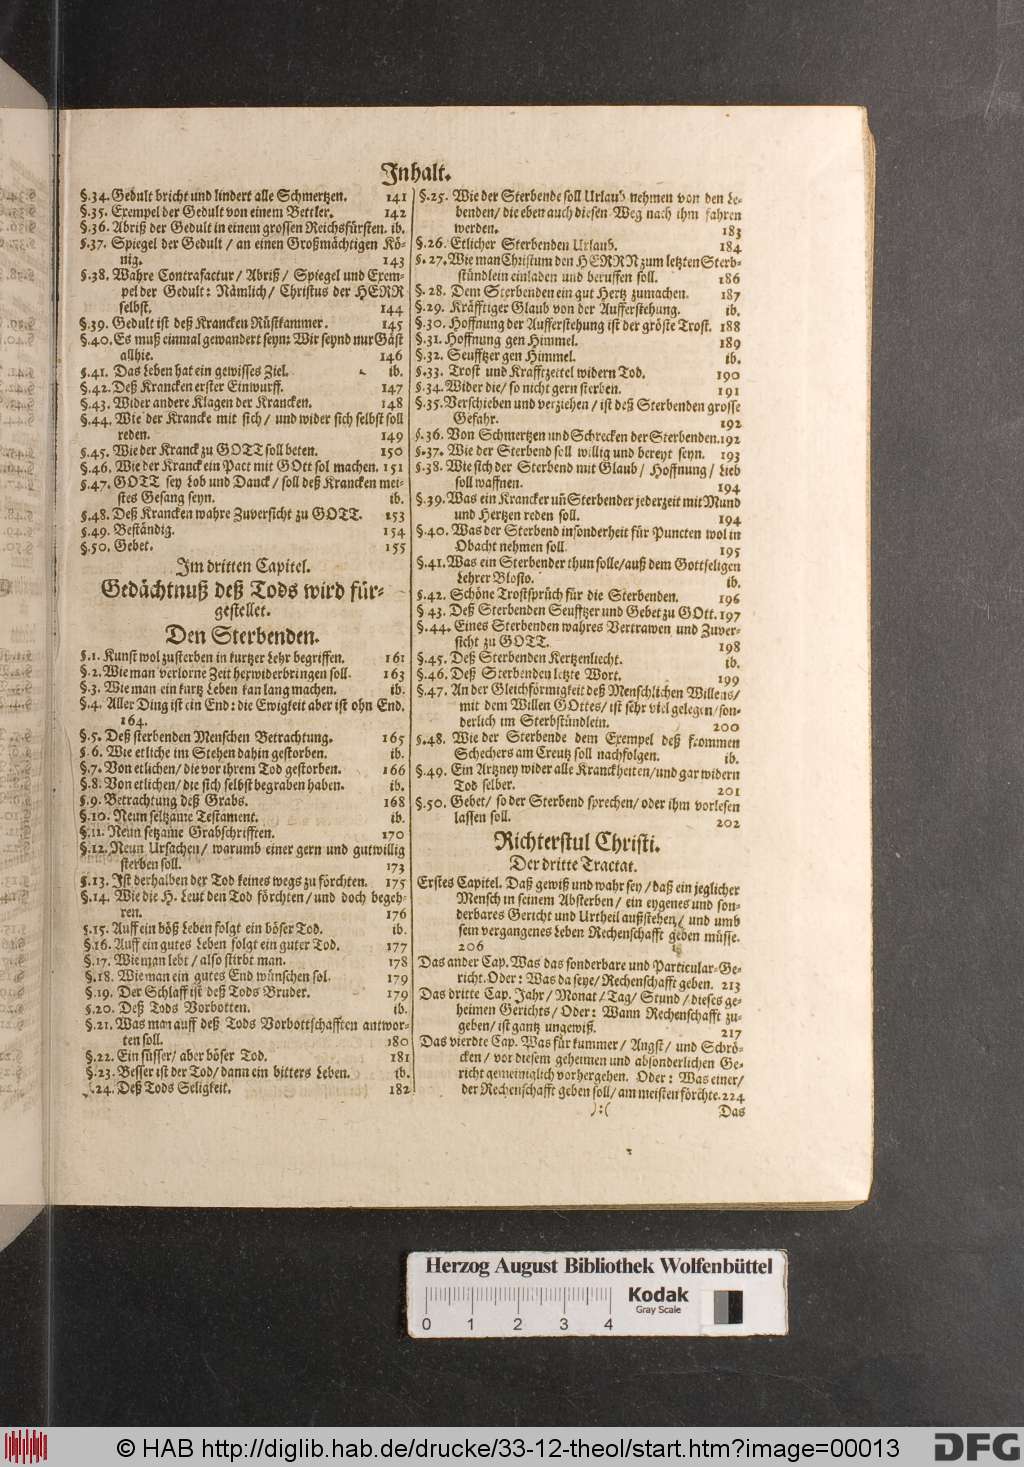 Inhalt.
§.34. Gedult bricht und lindert alle Schmertzen. 141
§.35. Exempel der Gedult von einem Bettler. 142
§.36. Abriß der Gedult in einem grossen Reichsfürsten. ib.
§.37. Spiegel der Gedult / an einen Großmächtigen Kö-
nig. 143
§.38. Wahre Contrafactur / Abriß / Spiegel und Exem-
pel der Gedult: Nämlich / Christus der HERR
selbst. 144
§.39. Gedult ist deß Krancken Rüstkammer. 145
§.40. Es muß einmal gewandert seyn: Wir seynd nur Gäst
allhie. 146
§.41. Das Leben hat ein gewisses Ziel. ib.
§.42. Deß Krancken erster Einwurff. 147
§.43. Wider andere Klagen der Krancken. 148
§.44. Wie der Krancke mit sich / und wider sich selbst soll
reden. 149
§.45. Wie der Kranck zu GOTT soll beten. 150
§.46. Wie der Kranck ein Pact mit GOtt sol machen. 151
§.47. GOTT sey Lob und Danck / soll deß Krancken mei-
stes Gesang seyn. ib.
§.48. Deß Krancken wahre Zuversicht zu GOTT. 153
§.49. Beständig. 154
§.50. Gebet. 155
Im dritten Capitel.
Gedächtnuß deß Tods wird für-
gestellet.
Den Sterbenden.
§.1. Kunst wol zusterben in kurtzer Lehr begriffen. 161
§.2. Wie man verlorne Zeit herwiderbringen soll. 163
§.3. Wie man ein kurtz Leben kan lang machen. ib.
§.4. Aller Ding ist ein End: die Ewigkeit aber ist ohn End.
164.
§.5. Deß sterbenden Menschen Betrachtung. 165
§.6. Wie etliche im Stehen dahin gestorben. ib.
§.7. Von etlichen / die vor ihrem Tod gestorben. 166
§.8. Von etlichen / die sich selbst begraben haben. ib.
§.9. Betrachtung deß Grabs. 168
§.10. Neun seltzame Testament. ib.
§.11. Neun setzame Grabschrifften. 170
§.12. Neun Ursachen / warumb einer gern und gutwillig
sterben soll. 173
§.13. Ist derhalben der Tod keines wegs zu förchten. 175
§.14. Wie die H. Leut den Tod förchten / und doch begeh-
ren. 176
§.15. Auff ein böß Leben folgt ein böser Tod. ib.
§.16. Auff ein gutes Leben folgt ein guter Tod. 177
§.17. Wie man lebt / also stirbt man. 178
§.18. Wie man ein gutes End wünschen sol. 179
§.19. Der Schlaff ist deß Tods Bruder. 179
§.20. Deß Tods Vorbotten. ib.
§.21. Was man auff deß Tods Vorbottschafften antwor-
ten soll. 180
§.22. Ein süsser / aber böser Tod. 181
§.23. Besser ist der Tod / dann ein bitters Leben. ib.
§.24. Deß Tods Seligkeit. 182
§.25. Wie der Sterbende soll Urlaub nehmen von den Le-
benden / die eben auch diesen Weg nach ihm fahren
werden. 183
§.26. Etlicher Sterbenden Urlaub. 184
§.27. Wie man Christum den HERRN zum letzten Sterb-
stündlein einladen und beruffen soll. 186
§.28. Dem Sterbenden ein gut Hertz zumachen. 187
§.29. Kräfftiger Glaub von der Aufferstehung. ib.
§.30. Hoffnung der Aufferstehung ist der gröste Trost. 188
§.31. Hoffnung gen Himmel. 189
§.32. Seufftzer gen Himmel. ib.
§.33. Trost und Krafftzettel widern Tod. 190
§.34. Wider die / so nicht gern sterben. 191
§.35. Verschieben und verziehen / ist deß Sterbenden grosse
Gefahr. 192
§.36. Von Schmertzen und Schrecken der Sterbenden. 192
§.37. Wie der Sterbend soll willig und bereyt seyn. 193
§.38. Wie sich der Sterbend mit Glaub / Hoffnung / Lieb
soll waffnen. 194
§.39. Was ein Krancker uñ Sterbender jederzeit mit Mund
und Hertzen reden soll. 194
§.40. Was der Sterbend insonderheit für Puncten wol in
Obacht nehmen soll. 195
§.41. Was ein Sterbender thun solle / auß dem Gottseligen
Lehrer Blosio. ib.
§.42. Schöne Trostsprüch für die Sterbenden. 196
§.43. Deß Sterbenden Seufftzer und Gebet zu GOtt. 197
§.44. Eines Sterbenden wahres Vertrawen und Zuver-
sicht zu GOTT. 198
§.45. Deß Sterbenden Kertzenliecht. ib.
§.46. Deß Sterbenden letzte Wort. 199
§.47. An der Gleichförmigkeit deß Menschlichen Willens /
mit dem Willen GOttes / ist sehr viel gelegen / son-
derlich im Sterbstündlein. 200
§.48. Wie der Sterbende dem Exempel deß frommen
Schechers am Creutz soll nachfolgen. ib.
§.49. Ein Artzney wider alle Kranckheiten / und gar widern
Tod selber. 201
§.50. Gebet / so der Sterbend sprechen / oder ihm vorlesen
lassen soll. 202
Richterstul Christi.
Der dritte Tractat.
Erstes Capitel. Daß gewiß und wahr sey / daß ein jeglicher
Mensch in seinem Absterben / ein eygenes und son-
derbares Gericht und Urtheil außstehen / und umb
sein vergangenes Leben Rechenschafft geben müsse.
206
Das ander Cap. Was das sonderbare und Particular-Ge-
richt. Oder: Was da seye / Rechenschafft geben. 213
Das dritte Cap. Jahr / Monat / Tag / Stund / dieses ge-
heimen Gerichts / Oder: Wann Rechenschafft zu-
geben / ist gantz ungewiß. 217
Das vierdte Cap. Was für kummer / Angst / und Schrö-
cken / vor diesem geheimen und absonderlichen Ge-
richt gemeiniglich vorhergehen. Oder: Was einer /
der Rechenschafft geben soll / am meisten förchte. 224
):( Das
Herzog August Bibliothek Wolfenbüttel
Kodak
Gray Scale
0 1 2 3 4
© HAB http://diglib.hab.de/drucke/33-12-theol/start.htm?image=00013
DFG